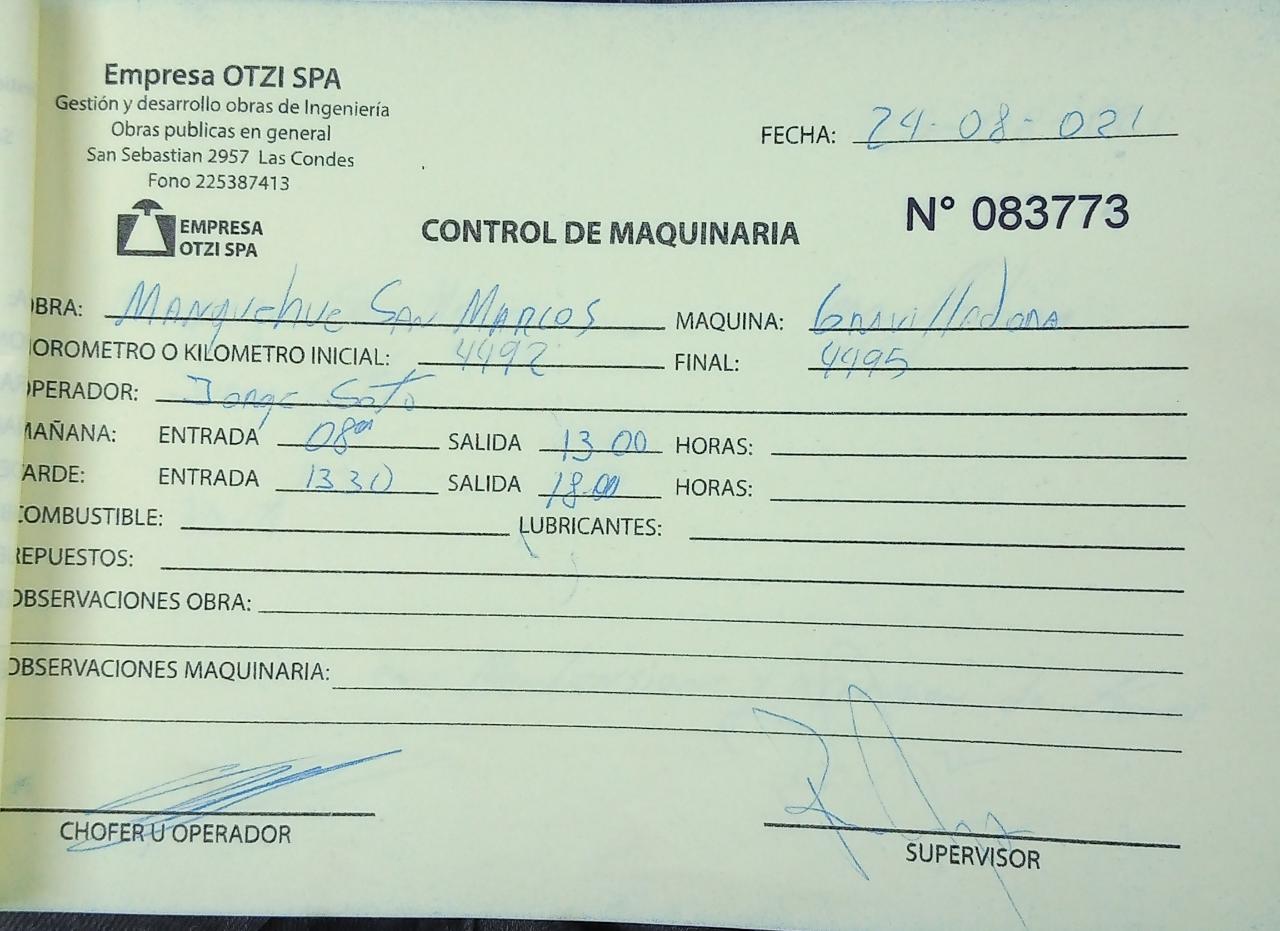 Empresa OTZI SPA
Gestión y desarrollo obras de Ingeniería
Obras publicas en general
San Sebastian 2957 Las Condes
Fono 225387413
FECHA: 24-08-021
EMPRESA
OTZI SPA
CONTROL DE MAQUINARIA
N° 083773
OBRA: Manquehue San Marcos MAQUINA: Gravilladora
HOROMETRO O KILOMETRO INICIAL: 4492 FINAL: 4495
OPERADOR: Jorge Soto
MAÑANA: ENTRADA 08°° SALIDA 13 00 HORAS:
TARDE: ENTRADA 13 30 SALIDA 18.00 HORAS:
COMBUSTIBLE: LUBRICANTES:
REPUESTOS:
OBSERVACIONES OBRA:
OBSERVACIONES MAQUINARIA:
CHOFER U OPERADOR
SUPERVISOR